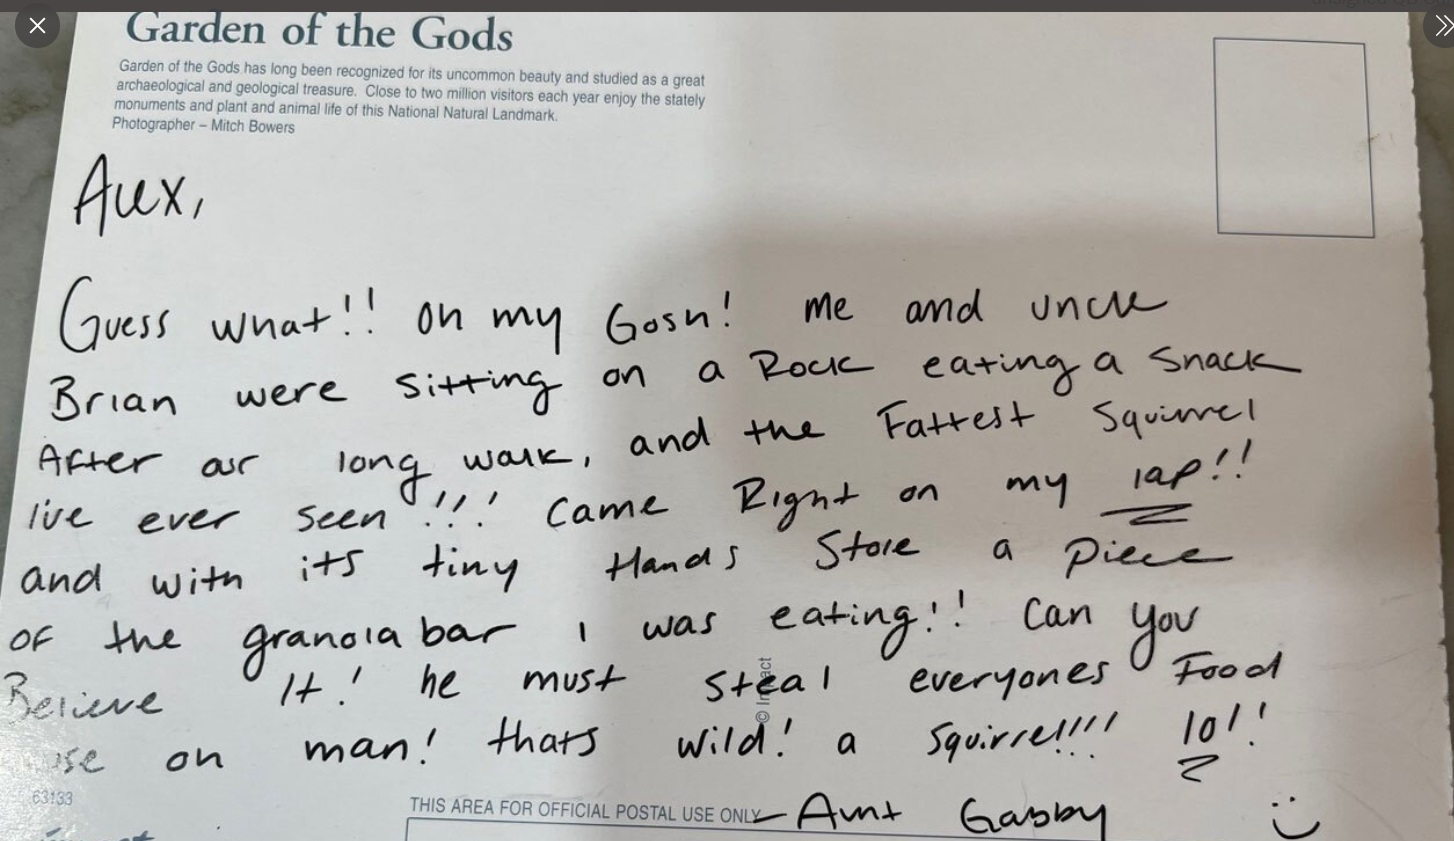 Garden of the Gods
Garden of the Gods has long been recognized for its uncommon beauty and studied as a great
archaeological and geological treasure. Close to two million visitors each year enjoy the stately
monuments and plant and animal life of this National Natural Landmark.
Photographer – Mitch Bowers
Alex,
Guess what!! oh my Gosh! me and uncle
Brian were sitting on a Rock eating a snack
After our long walk, and the Fattest Squirrel
I've ever seen!!! came Right on my lap!!
and with its tiny Hands Stole a piece
of the granola bar I was eating!! Can you
Believe It! he must steal everyones Food
on man! thats wild! a squirrel!!!! lol!!
© Impact
63133
THIS AREA FOR OFFICIAL POSTAL USE ONLY
- Aunt Gabby :)